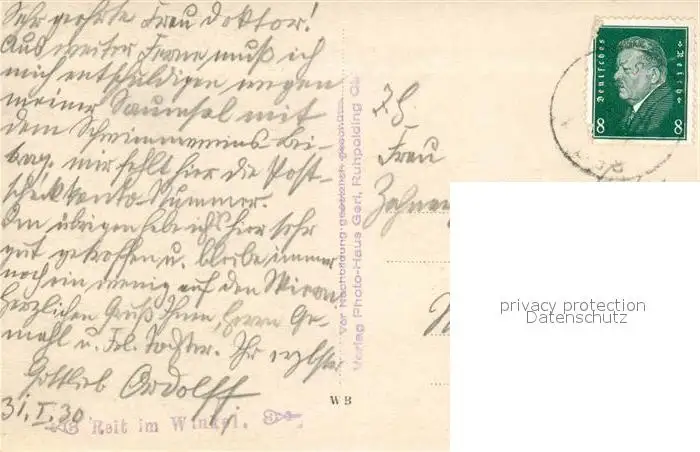 Sehr geehrte Frau Doktor!
Aus weiter Ferne muß ich
mich entschuldigen wegen
meiner Saumsal mit
dem Schwimmvereins Bei-
trag. mir fehlt hier die Post-
scheckkonto-Nummer.
Im übrigen habe ichs hier sehr
gut getroffen u. bleibe immer
noch ein wenig auf den Skiern
Herzlichen Gruß Ihnen, Herrn Ge-
mahl u. Frl. Tochter. Ihr
Gottlieb Ordolff
31.I.30
Reit im Winkel.
WB
Vor Nachbildung gesetzlich geschützt
Verlag Photo-Haus Gerl, Ruhpolding Ob
Frau
Deutsches Reich
8 8
privacy protection
Datenschutz